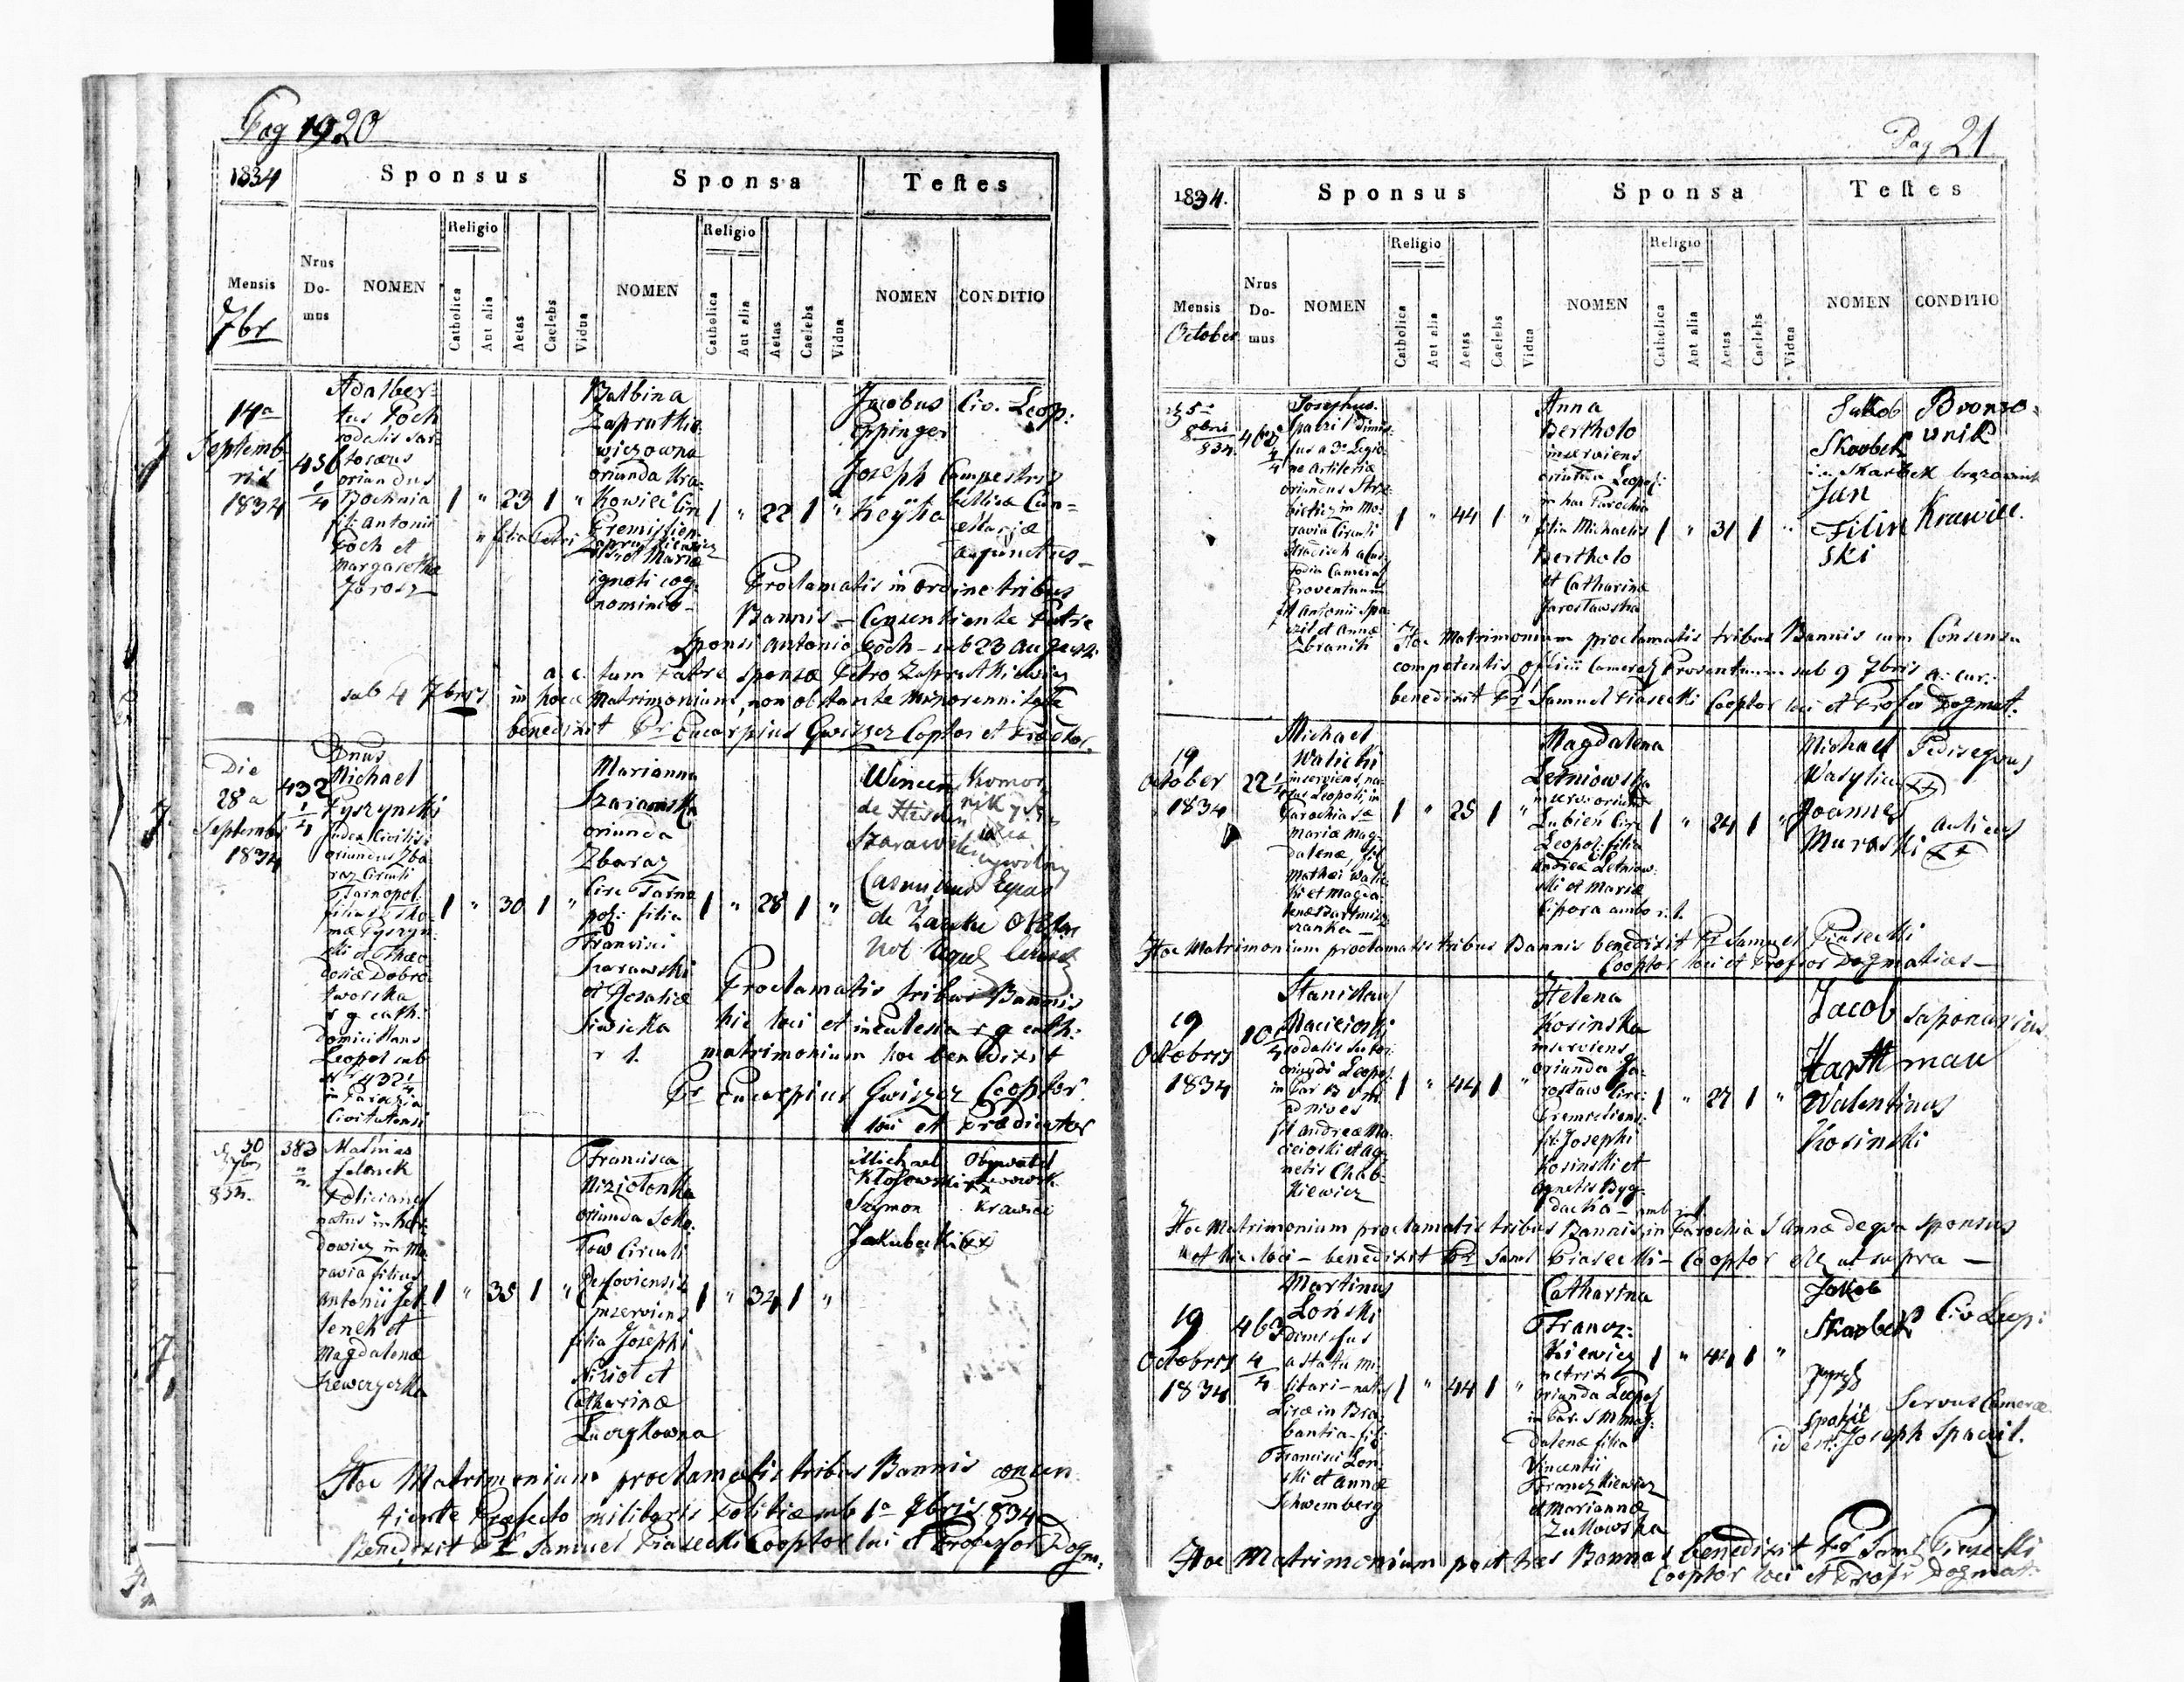 Pag 20
1834
Sponsus
Sponsa
Testes
Mensis
7br
Nrus Domus
NOMEN
Religio
Catholica
Aut alia
Aetas
Caelebs
Vidua
NOMEN
Religio
Catholica
Aut alia
Aetas
Caelebs
Vidua
NOMEN
CONDITIO
14a
Septemb
ris
1834
456
1/4
Adalber=
tus Poch
sodalis sar=
torius
oriundus
Bochnia
fil: Antonii
Poch et
Margaretha
Jarosz
1 " 23 1 "
Balbina
Zaprutkie
wiczowna
oriunda Kra=
kowiec Circ
Premislien
filia Petri
Zaprutkiewicz
et Maria
ignoti cog=
nominis
1 " 22 1 "
Jacobus
Eppinger
Civ. Leop:
Joseph
Heyka
Campestris
bellica Can=
cellariæ
adjunctus
Proclamatis in ordine tribus
Bannis – Consentiente Patre
Sponsi Antonio Poch – sub 23 Augusti
a. c. tum Patre sponsæ Petro Zaprutkiewicz
sub 4 7bris in hoce Matrimonium, non obstante minorennitate
benedixit Pr Eucarpius Gwiszcz Cooptor et Prædictor.
Die
28a
Septembr
1834
432
1/4
Dnus
Michael
Tyszynski
Judex Civilis
oriundus Zba
raz Circuli
Tarnopol:
filius Tho=
mæ Tyszyn
ski et Theo
dosiæ Dobro
tworska
r g cath:
domicilians
Leopol sub
Nr 432 1/4
in Parochia
Civitatensi
1 " 30 1 "
Marianna
Szarawska
oriunda
Zbaraz
Circ Tarno
pol: filia
Francisci
Szarawski
et Rosaliæ
Siwicka
r l.
1 " 28 1 "
Wincen
Komor
nik
de
Szarawski
Casmirus
de
Proclamatis tribus Bannis
hic loci et in Eclesia r g cath:
matrimonium hoc benedixit
Pr Eucarpius Gwiszcz Cooptor
loci et Prædicator
30
7bris
834.
383
Mathias
Selenek
Policianus
natus in
dowicz in Mo
ravia filius
Antonii Se
lenek et
Magdalenæ
Keweryczka
1 " 35 1 "
Francisca
Niziolonka
oriunda Soko
low Circuli
Resoviensis
Inserviens
filia Josephi
Niziol et
Catharinæ
Luczykowna
1 " 34 1 "
Michael
Klosowski
xx
Obywatel
Lwowsk
Szymon
Jakubecki (xx)
Krawiec
Hoc Matrimonium proclamatis tribus Bannis consen
tiente Præfecto militaris Politiæ sub 1a 7bris 834
Benedixit Pr Samuel Piasecki Cooptor loci et Professor Dogm.
Pag 21
1834.
Sponsus
Sponsa
Testes
Mensis
October
Nrus Domus
NOMEN
Religio
Catholica
Aut alia
Aetas
Caelebs
Vidua
NOMEN
Religio
Catholica
Aut alia
Aetas
Caelebs
Vidua
NOMEN
CONDITIO
5
8bris
834.
462
4/4
Josephus
Spatzil dimis=
sus a 3a Legio
ne Artileriæ
oriundus
in Mo=
ravia Circuli
Hradisch
Cameral
Proventuum
fil Antonii Spa
zil et Annæ
Zbranik
1 " 44 1 "
Anna
Bertholo
inserviens
oriunda Leopol:
in hac Parochia
filia Michaelis
Bertholo
et Catharinæ
Jaroslawska
1 " 31 1 "
Jakob
Skarbek
Bronzo=
wnik
Skarbek brązownik
Jan
Filin
ski
Krawiec.
Hoc Matrimonium proclamatis tribus Bannis cum Consensu
competentis Officii Cameral Proventuum sub 9 7bris a. cur:
benedixit Pr Samuel Piasecki Cooptor loci et Profes Dogmat.
19
October
1834
22 1/4
Michael
Walicki
inserviens, na=
tus Leopoli, in
Parochia Sæ
Mariæ Mag
dalenæ, fil
Mathei Walic
ki et Magda
lenæ
1 " 25 1 "
Magdalena
Letniowska
inserv: oriunda
Lubień Circ
Leopol: filia
Andreæ Letniow
ski et Mariæ
Cipora ambo r. l.
1 " 24 1 "
Michael
Wasylica
Pedisequus
(xx)
Joannes
Muraski
aulicus
(xx)
Hoc Matrimonium proclamatis tribus Bannis benedixit Pr Samuel Piasecki
Cooptor loci et Profsor Dogmatices –
19
Octobris
1834
10
1/4
Stanislaus
Macieioski
sodalis sutor
oriundi Leopol:
in Par B V M
ad nives
fil Andreæ Ma
cieioski et Ag=
netis Chab=
kiewicz
1 " 44 1 "
Helena
Kosinska
inserviens
oriunda Ja=
roslaw Circ:
Premisliens:
fil Josephi
Kosinski et
Agnetis Byg=
dacha – amb r l
1 " 27 1 "
Jacob
Hartman
Saponarius.
Walentinus
Kosinski
Hoc Matrimonium proclamatis tribus Bannis in Parochia S Annæ de qua sponsus
et hic loci – benedixit Pr Saml Piasecki – Cooptor etc ut supra –
19
Octobris
1834
463
4/4
Martinus
Loński
Dimissus
a statu mi
litari – natus
Liræ in Bra
bantia – fil:
Francisci Lon=
ski et Annæ
Schwemberg
1 " 44 1 "
Catharina
Francz=
kiewicz
netrix
oriunda Leopol
in Par: S M Mag=
dalenæ filia
Vincentii
Franczkiewicz
et Mariannæ
Zulkowska
1 " 44 1 "
Jakob
Skarbek
Civ Leop:
Spazil
Servus Cameræ
id est: Joseph Spacil.
Hoc Matrimonium post tres Bannas benedixit Pr Saml Piasecki
Cooptor loci et Profs Dogmat.